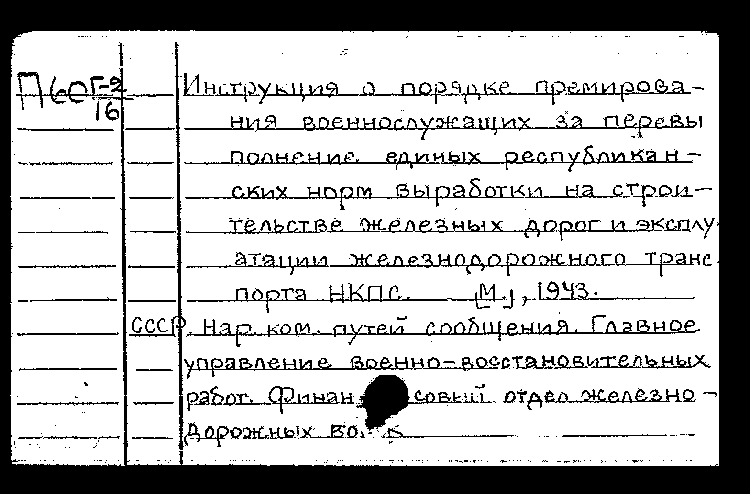 П60 Г-2/16 Инструкция о порядке премирова-
ния военнослужащих за перевы
полнение единых республикан-
ских норм выработки на строи-
тельстве железных дорог и эксплу
атации железнодорожного транс
порта НКПС. [М.], 1943.
СССР. Нар. ком. путей сообщения. Главное
управление военно-восстановительных
работ. Финансовый отдел железно-
дорожных